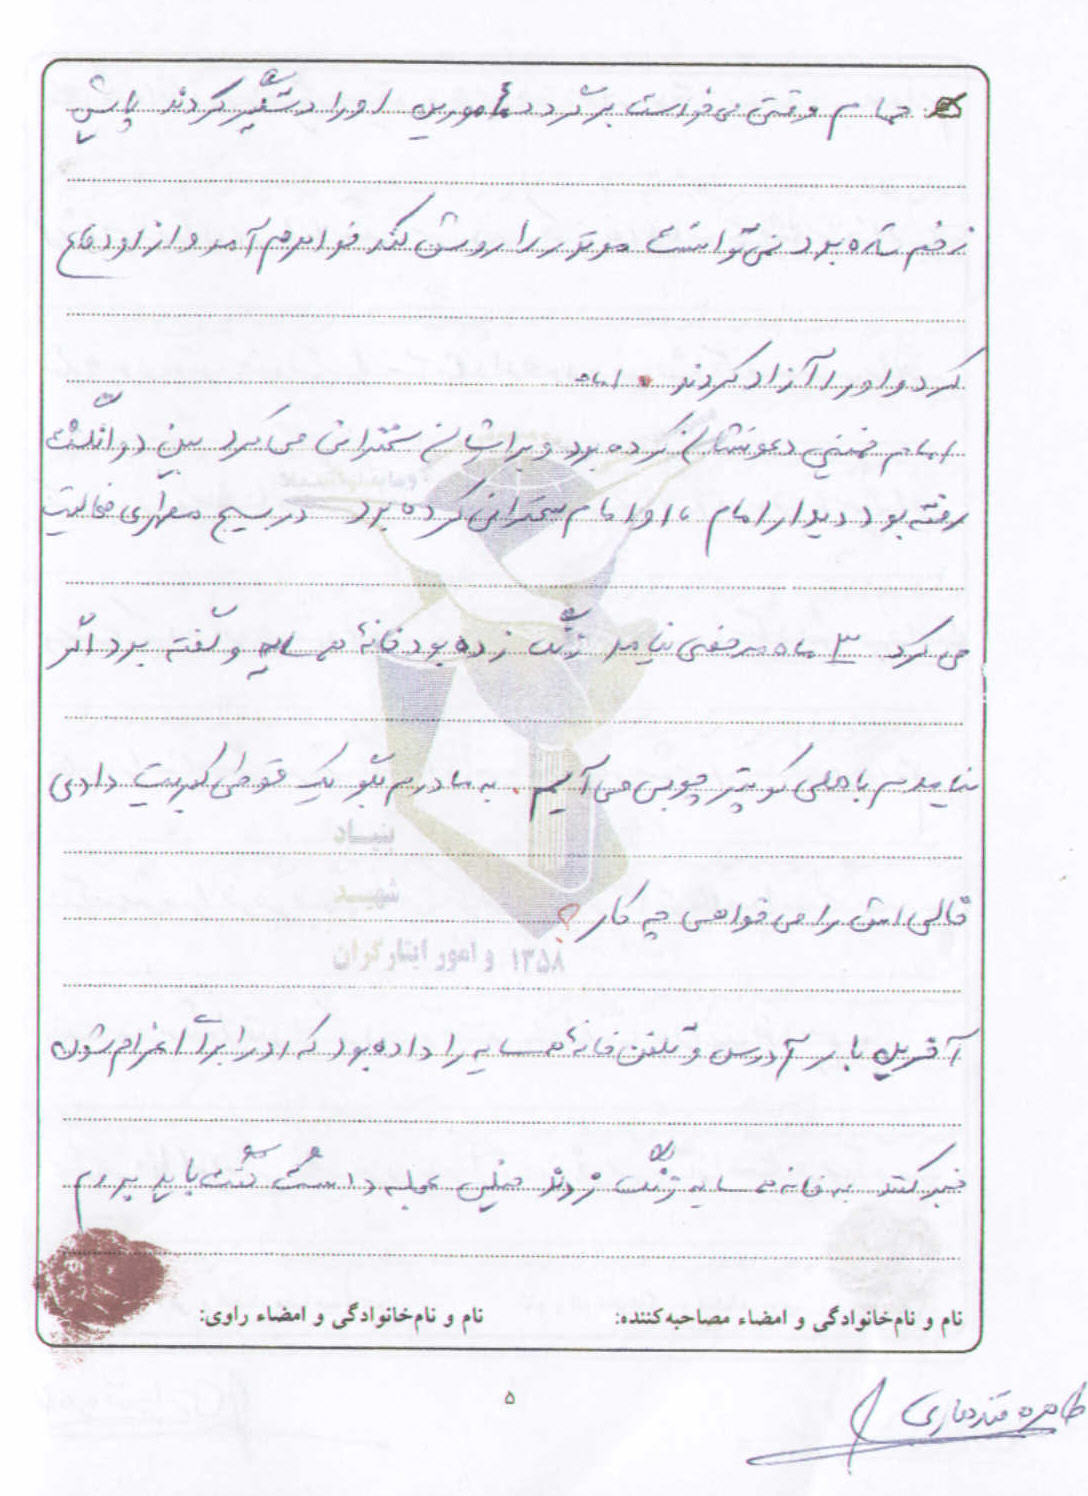 حمام وقتی می خواست برگردد مأمورین او را دستگیر کردند پایش
زخم شده بود نمی توانست موتور را روشن کند خواهرم آمد و از او دفاع
کرد و او را آزاد کردند. امام
امام خمینی دعوتشان کرده بود و برایشان سخنرانی می کرد بین دو انگشت
رفته بود دیدار امام، او امام سخنرانی کرده بود در بسیج مطهری فعالیت
می کرد. ۳ ماه مرخصی نیامد زنگ زده بود خانهٔ همسایه و گفته بود اگر
نیایدم با هلی کوپتر چوبی می آیم. به مادرم بگو یک قوطی کبریت دادی
قالی اش را می خواهی چه کار؟
آخرین بار آدرس و تلفن خانهٔ همسایه را داده بود که او را برای اعزام شدن
خبر کنند به خانه همسایه زنگ زدند خیلی عجله داشت گفت باید بروم
بنیاد
شهید
و امور ایثارگران ۱۳۵۸
نام و نام‌خانوادگی و امضاء مصاحبه‌کننده:
نام و نام‌خانوادگی و امضاء راوی:
۵
طاهره قندهاری